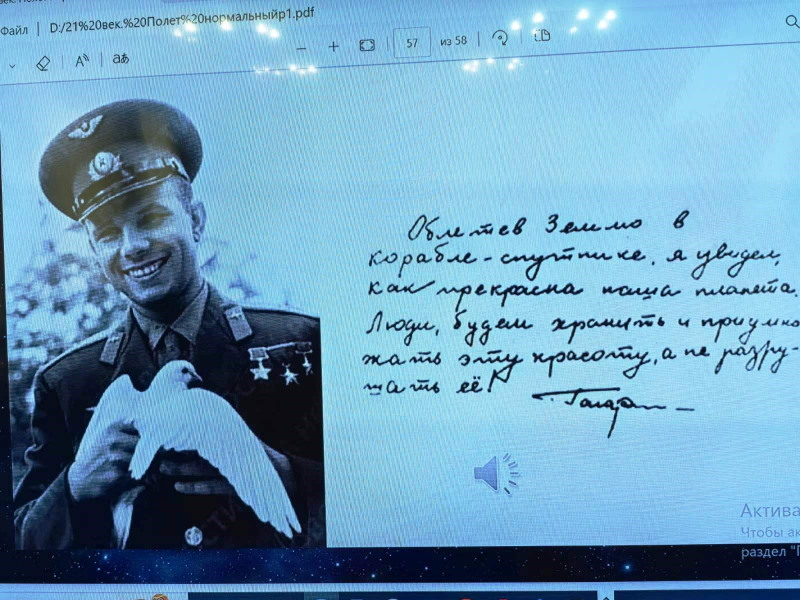 Файл | D:/21%20век.%20Полет%20нормальныйp1.pdf
57 из 58
aあ
Облетев Землю в
корабле-спутнике, я увидел,
как прекрасна наша планета.
Люди, будем хранить и приумно
жать эту красоту, а не разру-
шать её!
Гагарин
Актива
Чтобы ак
раздел "П